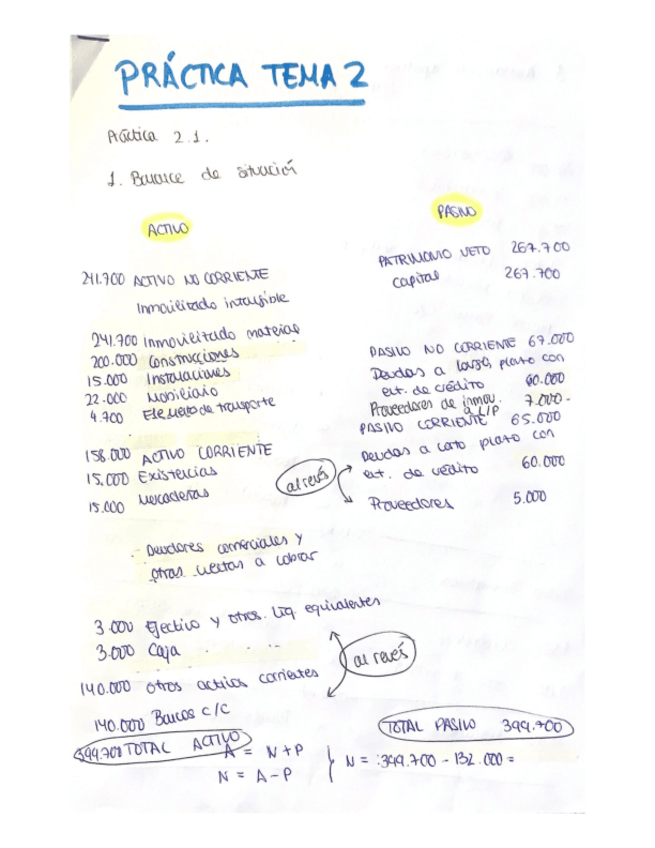 PRÁCTICA TEMA 2
Práctica 2.1.
1. Balance de situación
ACTIVO
241.700 ACTIVO NO CORRIENTE
Inmovilizado intangible
241.700 Inmovilizado material
200.000 Construcciones
15.000 Instalaciones
22.000 Mobiliario
4.700 Elemento de transporte
158.000 ACTIVO CORRIENTE
15.000 Existencias
15.000 Mercaderías
- Deudores comerciales y
otras cuentas a cobrar
3.000 Efectivo y otros. Liq. equivalentes
3.000 Caja
140.000 otros activos corrientes
140.000 Bancos c/c
al revés
399.700 TOTAL ACTIVO
PASIVO
PATRIMONIO NETO 267.700
Capital 267.700
PASIVO NO CORRIENTE 67.000
Deudas a largo plazo con
ent. de crédito 60.000
Proveedores de inmov. 7.000.
a L/P
PASIVO CORRIENTE 65.000
Deudas a corto plazo con
ent. de crédito 60.000
al revés
Proveedores 5.000
TOTAL PASIVO 399.700
A = N+P
N = A-P
N = 399.700 - 132.000 =